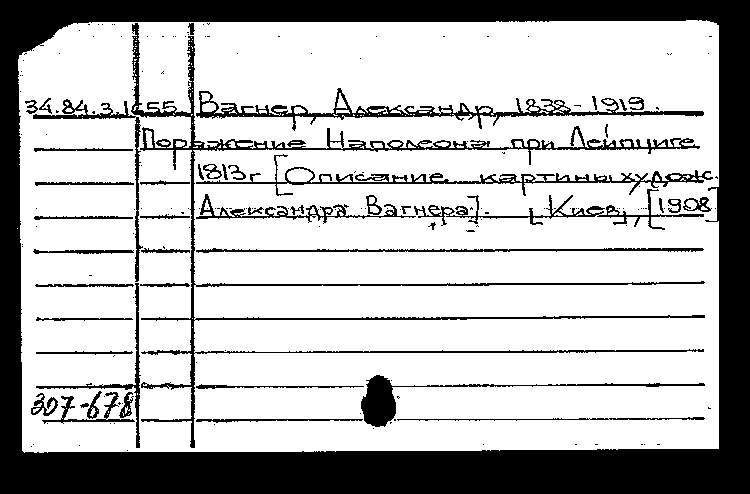 34.84.3.1655. Вагнер, Александр, 1838-1919.
Поражение Наполеона при Лейпциге
1813г [Описание картины худож.
Александра Вагнера]. [Киев], [1908]
307-678